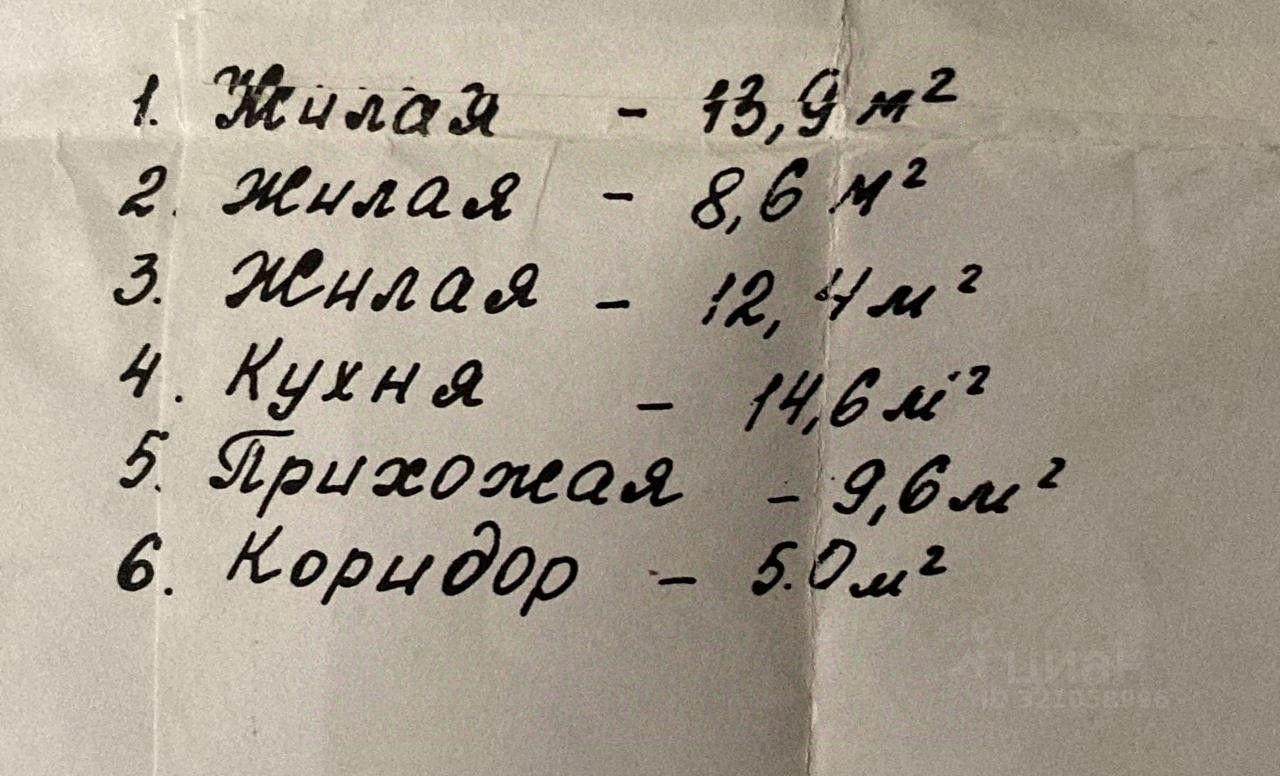 1. Жилая - 13,9 м²
2. Жилая - 8,6 м²
3. Жилая - 12,4 м²
4. Кухня - 14,6 м²
5. Прихожая - 9,6 м²
6. Коридор - 5.0 м²
циан
ID 321058996